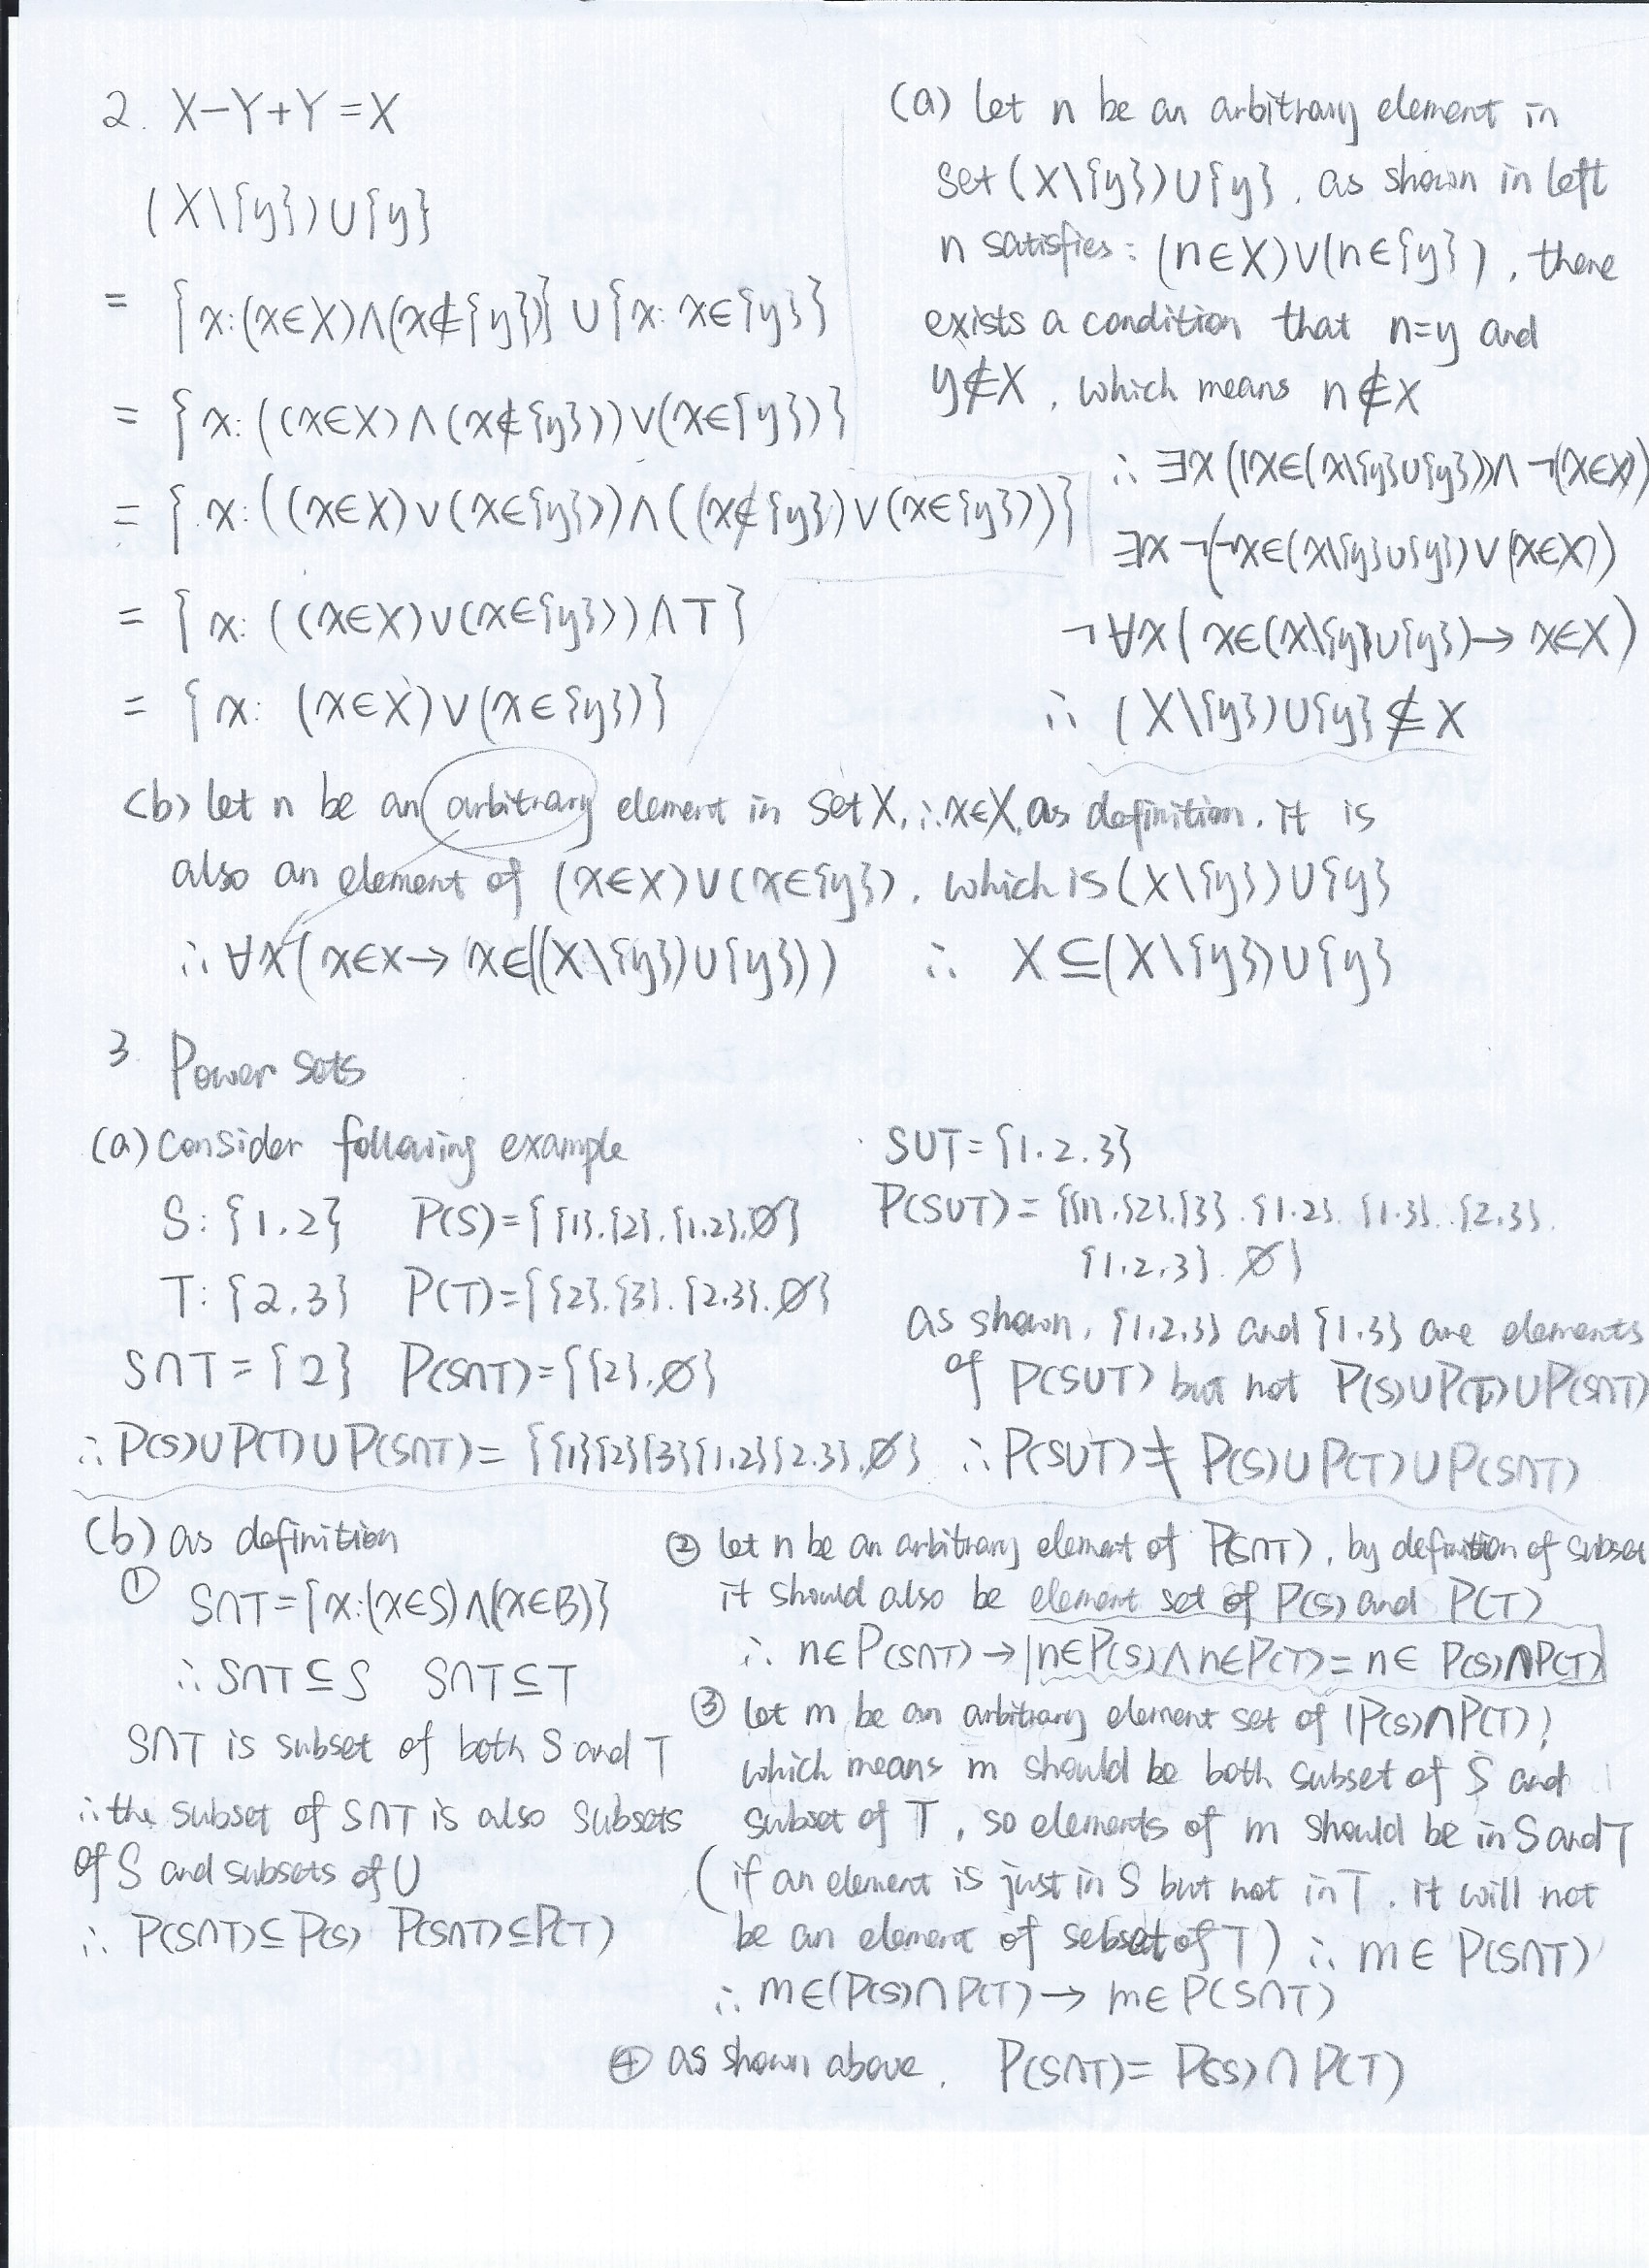 2. X−Y+Y=X
(X\{y})∪{y}
= {x:(x∈X)∧(x∉{y})}∪{x: x∈{y}}
= {x:((x∈X)∧(x∉{y}))∨(x∈{y})}
= {x:((x∈X)∨(x∈{y}))∧((x∉{y})∨(x∈{y}))}
= {x: ((x∈X)∨(x∈{y}))∧T}
= {x: (x∈X)∨(x∈{y})}
(a) let n be an arbitrary element in
set (X\{y})∪{y}, as shown in left
n satisfies: (n∈X)∨(n∈{y}), there
exists a condition that n=y and
y∉X, which means n∉X
∴ ∃x((x∈(X\{y}∪{y}))∧¬(x∈X))
∃x¬(¬x∈(X\{y}∪{y})∨(x∈X))
¬∀x(x∈(X\{y}∪{y})→ x∈X)
∴ (X\{y})∪{y}⊈X
(b) let n be an arbitrary element in set X, ∴x∈X, as definition, it is
also an element of (x∈X)∨(x∈{y}), which is (X\{y})∪{y}
∴ ∀x(x∈X→ x∈((X\{y})∪{y})) ∴ X⊆(X\{y})∪{y}
3. Power sets
(a) consider following example
S: {1,2} P(S)={{1},{2},{1,2},∅}
T: {2,3} P(T)={{2},{3},{2,3},∅}
S∩T={2} P(S∩T)={{2},∅}
∴P(S)∪P(T)∪P(S∩T)={{1}{2}{3}{1,2}{2,3},∅}
S∪T={1,2,3}
P(S∪T)={{1},{2},{3},{1,2},{1,3},{2,3},
{1,2,3},∅}
as shown, {1,2,3} and {1,3} are elements
of P(S∪T) but not P(S)∪P(T)∪P(S∩T)
∴P(S∪T)≠P(S)∪P(T)∪P(S∩T)
(b) as definition
① S∩T={x:(x∈S)∧(x∈B)}
∴S∩T⊆S S∩T⊆T
S∩T is subset of both S and T
∴the subset of S∩T is also subsets
of S and subsets of U
∴ P(S∩T)⊆P(S) P(S∩T)⊆P(T)
② let n be an arbitrary element of P(S∩T), by definition of subset
it should also be element set of P(S) and P(T)
∴ n∈P(S∩T)→n∈P(S)∧n∈P(T)=n∈ P(S)∩P(T)
③ let m be an arbitrary element set of (P(S)∩P(T))
which means m should be both subset of S and
subset of T, so elements of m should be in S and T
(if an element is just in S but not in T, it will not
be an element of sebset of T) ∴ m∈P(S∩T)
∴ m∈(P(S)∩P(T)→ m∈P(S∩T)
④ as shown above, P(S∩T)=P(S)∩P(T)